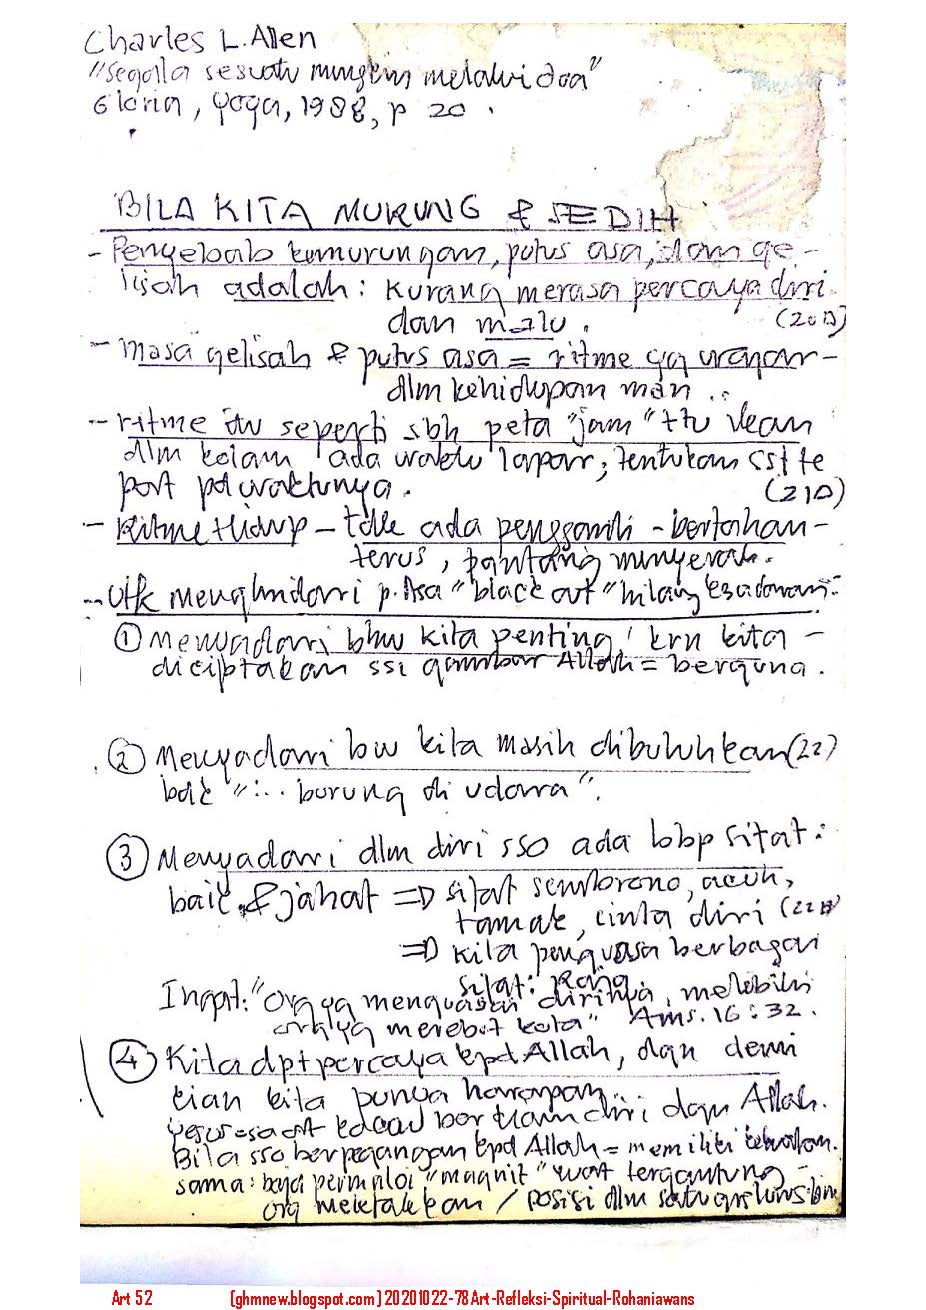 Charles L. Allen
"Segalla sesuatu mungkin melalui doa"
Gloria, Yogya, 1988, p 20.
BILA KITA MURUNG & SEDIH
- Penyebab kemurungan, putus asa, dan ge-
lisah adalah: kurang merasa percaya diri
dan malu. (20B)
- masa gelisah & putus asa = ritme yg wajar -
dlm kehidupan man ..
- ritme itu seperti sbh peta "jam" ttu ikan
dlm kolam ada waktu lapar, tentukan sst te
pat pd waktunya. (21A)
- Ritme Hidup - tdk ada pengganti - bertahan -
terus, pantang menyerah.
- Utk menghindari p. Asa "black out" hilang kesadaran:
① Menyadari bhw kita penting! krn kita -
diciptakan ssi gambar Allah = berguna.
② Menyadari bw kita masih dibutuhkan (22)
baik "... burung di udara".
③ Menyadari dlm diri sso ada bbp sifat:
baik & jahat => sifat sembrono, acuh,
tamak, cinta diri (22B)
=> kita penguasa berbagai
sifat:
Ingat: "Org yg menguasai dirinya, melebihi
org yg merebut kota" Ams. 16:32.
④ Kita dpt percaya kpd Allah, dgn demi
kian kita punya harapan
diri dgn Allah.
Bila sso berpegangan kpd Allah = memiliki kekuatan.
sama: baja "magnit" kuat tergantung -
org meletakkan / posisi dlm satu grs lurus
Art 52 [ghmnew.blogspot.com] 20201022-78 Art-Refleksi-Spiritual-Rohaniawans